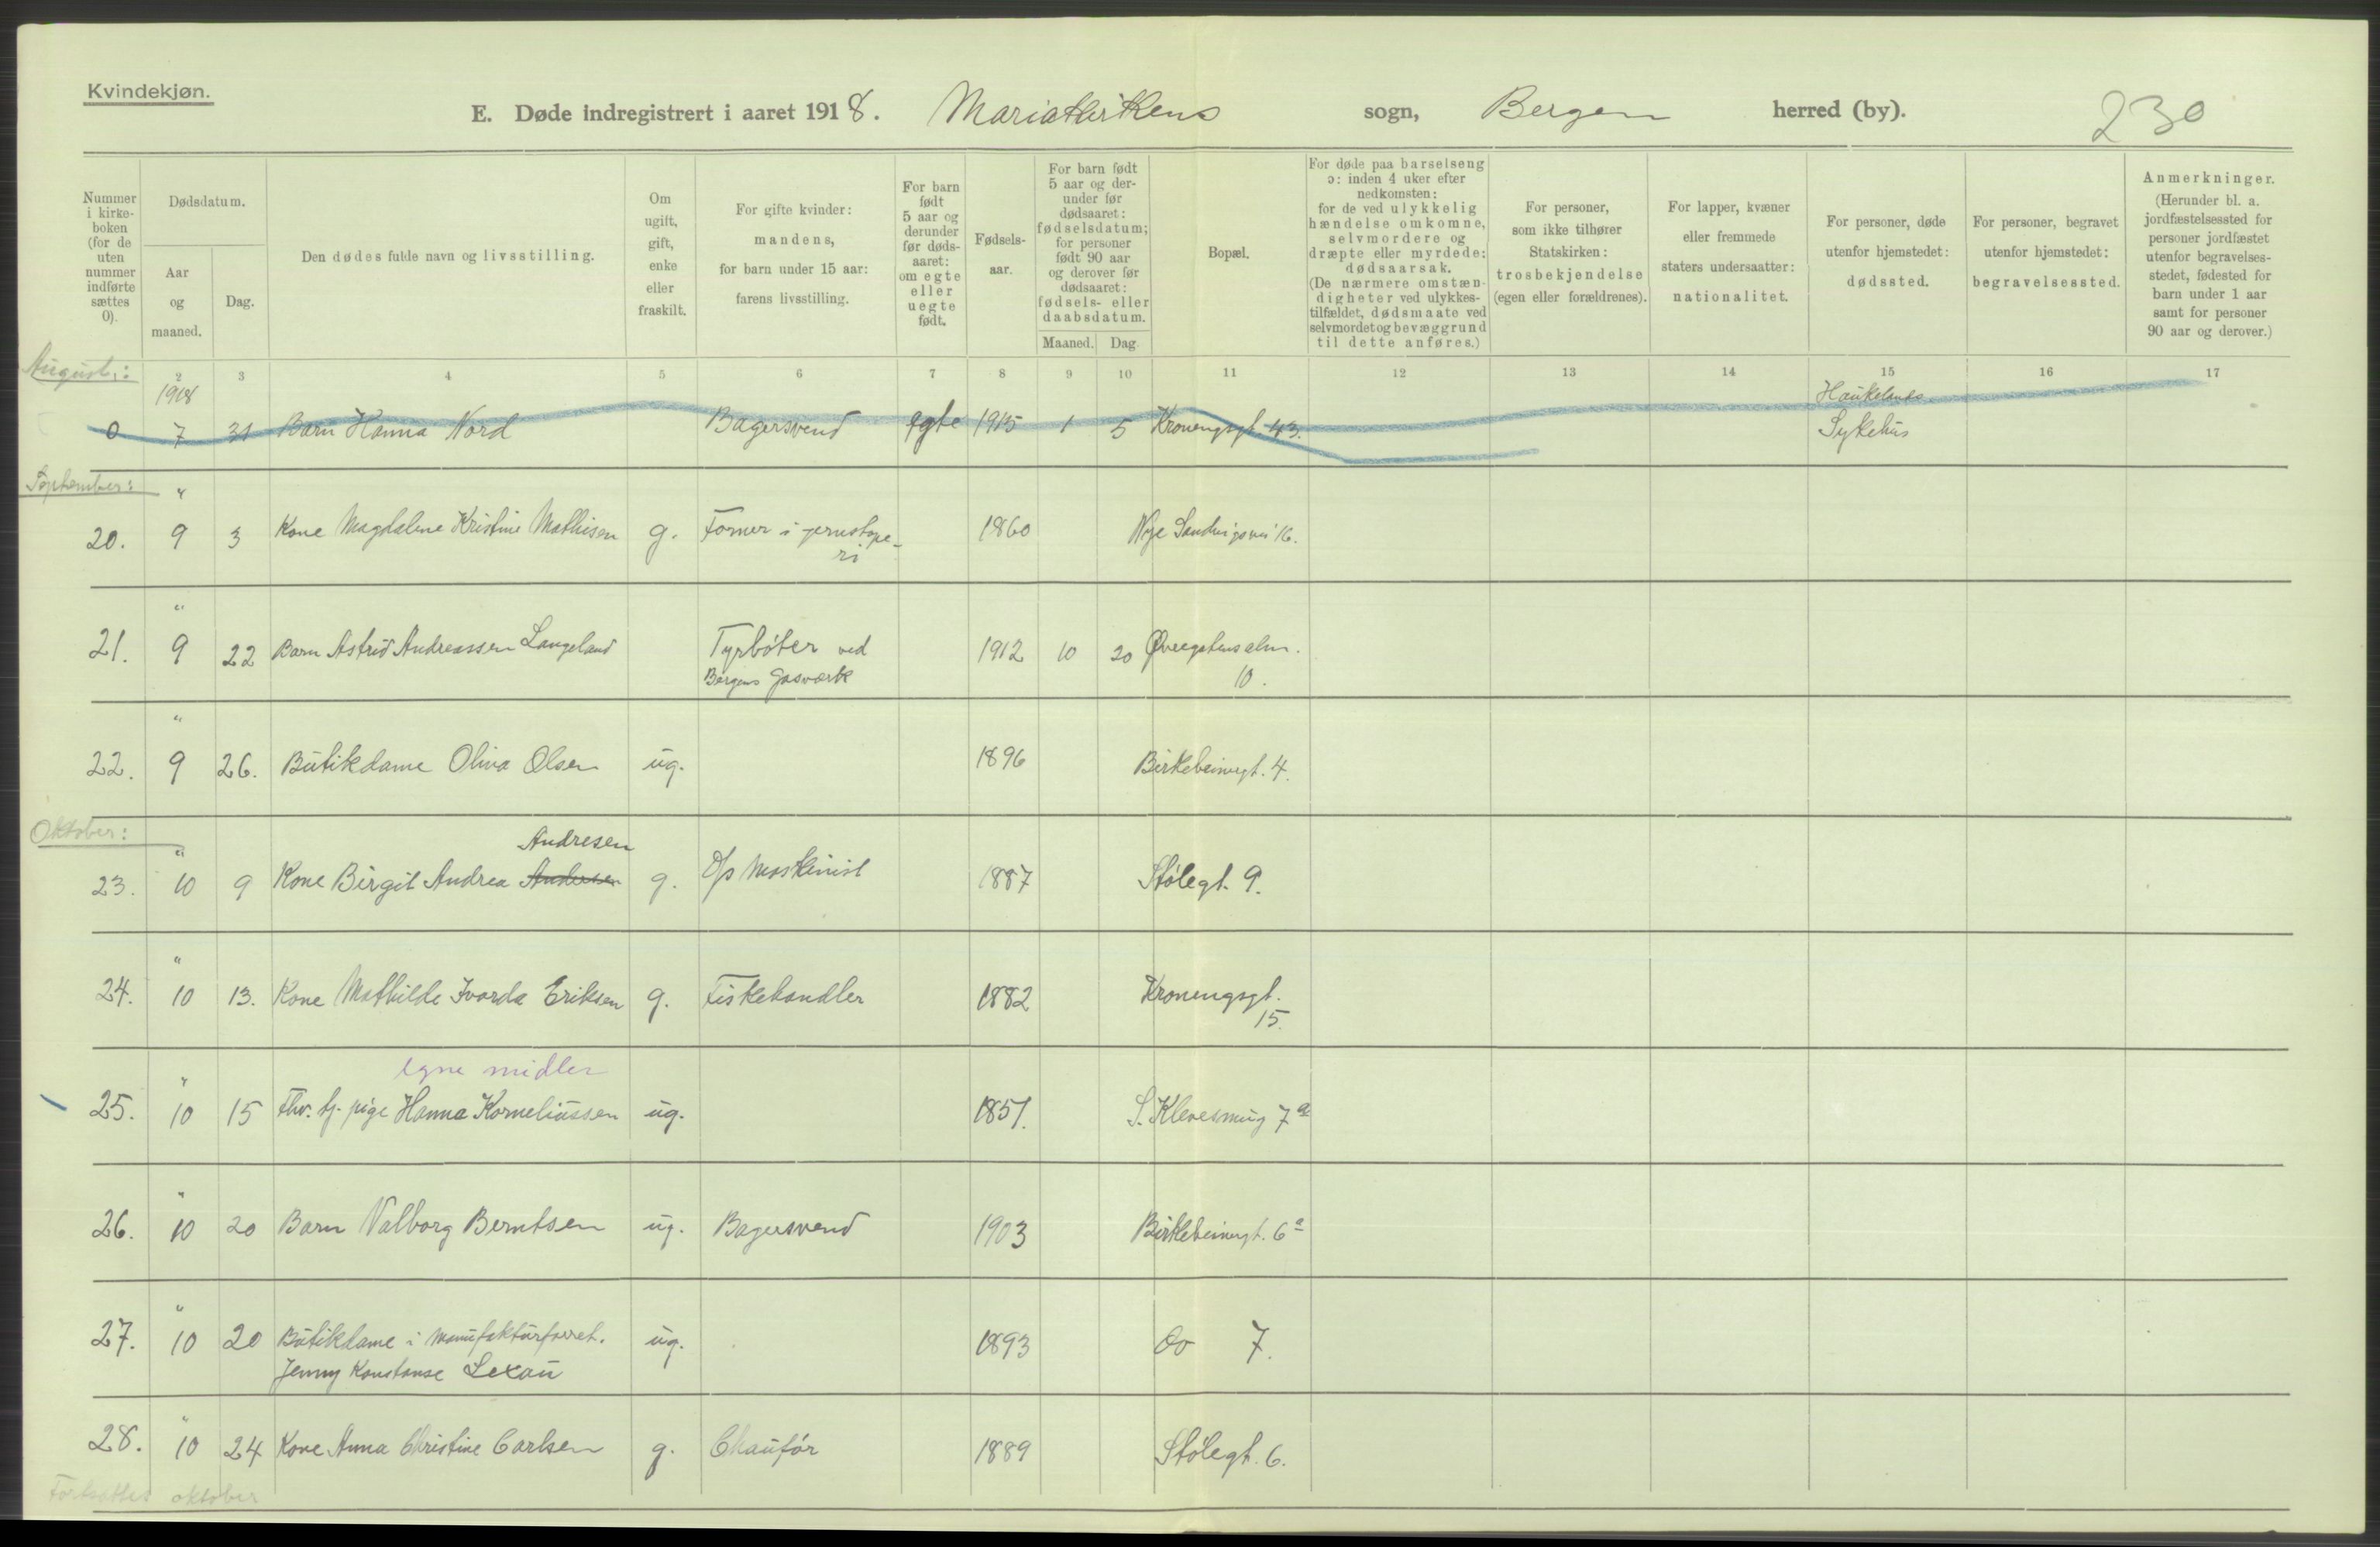 Kvindekjøn.
E. Døde indregistrert i aaret 1918. Mariakirkens sogn, Bergen herred (by). 230
Nummer i kirke- boken (for de uten nummer indførte sættes 0).
Dødsdatum.
Aar og maaned.
Dag.
Den dødes fulde navn og livsstilling.
Om ugift, gift, enke eller fraskilt.
For gifte kvinder: mandens, for barn under 15 aar: farens livsstilling.
For barn født 5 aar og derunder før døds- aaret: om egte eller uegte født.
Fødsels- aar.
For barn født 5 aar og der- under før dødsaaret: fødselsdatum; for personer født 90 aar og derover før dødsaaret: fødsels- eller daabsdatum.
Maaned. Dag
Bopæl.
For døde paa barselseng ɔ: inden 4 uker efter nedkomsten: for de ved ulykkelig hændelse omkomne, selvmordere og dræpte eller myrdede: dødsaarsak. (De nærmere omstæn- digheter ved ulykkes- tilfældet, dødsmaate ved selvmordet og bevæggrund til dette anføres.)
For personer, som ikke tilhører Statskirken: trosbekjendelse (egen eller forældrenes).
For lapper, kvæner eller fremmede staters undersaatter: nationalitet.
For personer, døde utenfor hjemstedet: dødssted.
For personer, begravet utenfor hjemstedet: begravelsessted.
Anmerkninger. (Herunder bl. a. jordfæstelsessted for personer jordfæstet utenfor begravelses- stedet, fødested for barn under 1 aar samt for personer 90 aar og derover.)
August:
2 3 4 5 6 7 8 9 10 11 12 13 14 15 16 17
1918
0 7 31 Barn Hanna Nord Bagersvend egte 1915 1 5 Kronengsgt. 43. Haukelands
Sykehus
September: "
20. 9 3 Kone Magdalene Kristine Mathisen g. Former i jernstøpe- 1860 Nye Sandvigsvei 16.
ri
"
21. 9 22 Barn Astrid Andreassen Langeland Fyrbøter ved 1912 10 20 Øvregatensalm.
Bergens Gasværk 10.
"
22. 9 26. Butikdame Oliva Olsen ug. 1896 Birkebeinergt. 4.
Oktober: " Andresen
23. 10 9 Kone Birgit Andrea Andersen g. D/s Maskinist 1887 Stølegt. 9.
"
24. 10 13. Kone Mathilde Ivarda Eriksen g. Fiskehandler 1882 Kronengsgt.
15.
egne midler
"
25. 10 15 Fhv. tj. pige Hanna Korneliussen ug. 1851. S. Klevesmug 7a
"
26. 10 20 Barn Valborg Berntsen ug. Bagersvend 1903 Birkebeinergt. 6a
"
27. 10 20 Butikdame i manufakturforret. ug. 1893 do 7.
Jenny Konstanse Lexau
"
28. 10 24 Kone Anna Christine Carlsen g. Chauför 1889 Stølegt. 6.
Fortsættes oktober